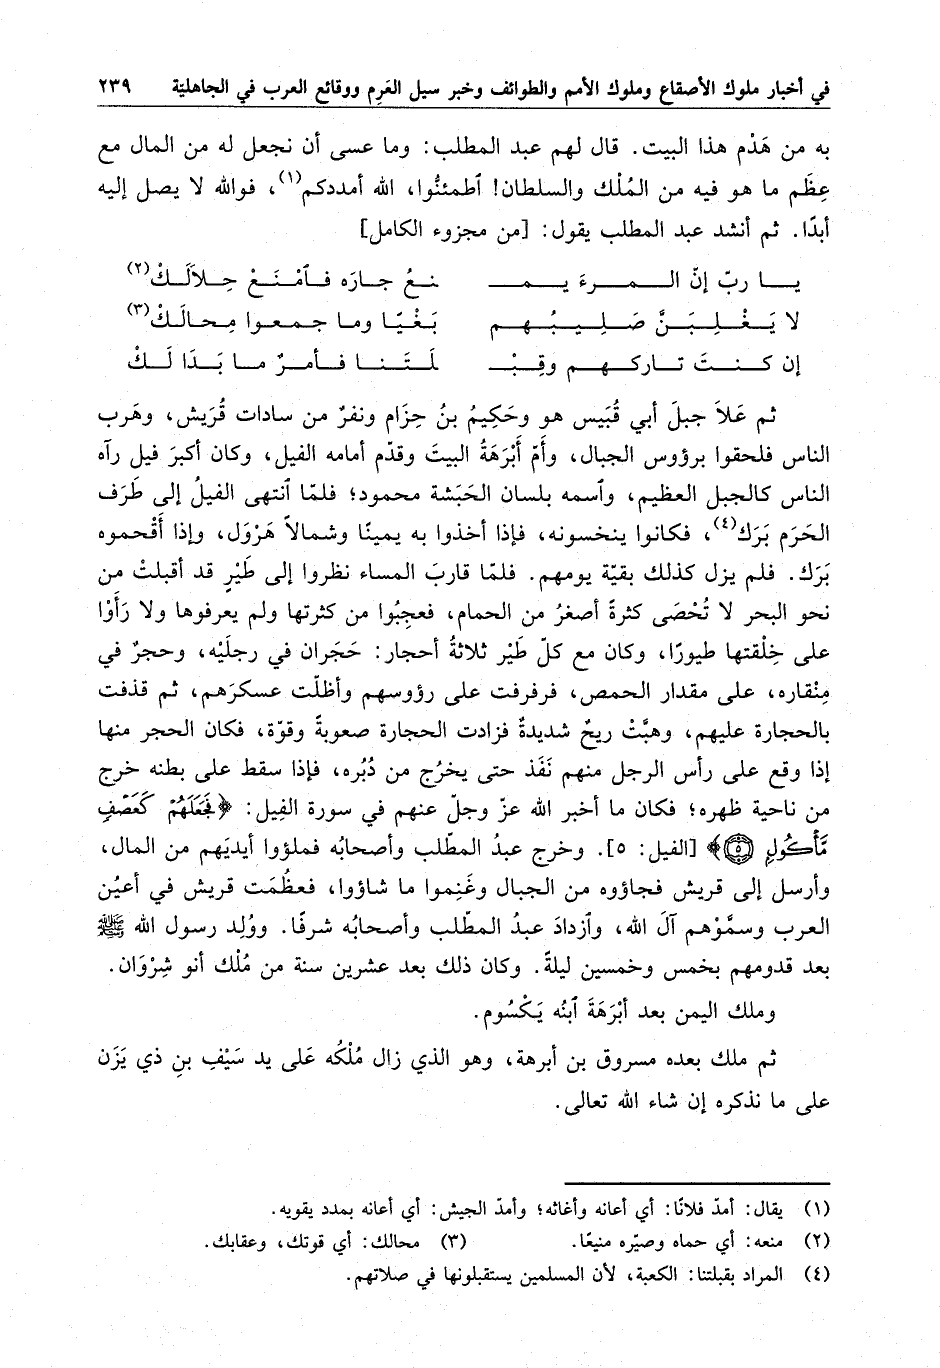 في أخبار ملوك الأصقاع وملوك الأمم والطوائف وخبر سيل العَرِم ووقائع العرب في الجاهليّة ٢٣٩
به من هَدْم هذا البيت. قال لهم عبد المطلب: وما عسى أن نجعل له من المال مع
عِظَم ما هو فيه من المُلْك والسلطان! ٱطمئنُّوا، الله أمددكم(١)، فوالله لا يصل إليه
أبدًا. ثم أنشد عبد المطلب يقول: [من مجزوء الكامل]
يا ربّ إنّ المرءَ يمـ ـنعُ جارَه فٱمْنَعْ حِلاَلَكْ(٢)
لا يَغْلِبَنَّ صَلِيبُهم بَغْيًا وما جمعوا مِحالَكْ(٣)
إن كنتَ تاركهم وقِبْـ ـلَتَنا فأمرٌ ما بَدَا لَكْ
ثم عَلاَ جبلَ أبي قُبَيس هو وحَكِيمُ بنُ حِزَام ونفرٌ من سادات قُرَيش، وهَرب
الناس فلحقوا برؤوس الجبال، وأَمّ أَبْرَهَةُ البيتَ وقدّم أمامه الفيل، وكان أكبرَ فيل رآه
الناس كالجبل العظيم، وٱسمه بلسان الحَبَشة محمود؛ فلمّا ٱنتهى الفيلُ إلى طَرَف
الحَرَم بَرَك(٤)، فكانوا ينخسونه، فإذا أخذوا به يمينًا وشمالاً هَرْوَل، وإذا أَقْحموه
بَرَك. فلم يزل كذلك بقيّة يومهم. فلمّا قاربَ المساء نظروا إلى طَيْرٍ قد أقبلتْ من
نحو البحر لا تُحْصَى كثرةً أصغرُ من الحمام، فعجِبُوا من كثرتها ولم يعرفوها ولا رَأَوْا
على خِلْقتها طيورًا، وكان مع كلّ طَيْر ثلاثةُ أحجار: حَجَران في رجلَيْه، وحجرٌ في
مِنْقاره، على مقدار الحمص، فرفرفت على رؤوسهم وأظلّت عسكرَهم، ثم قذفت
بالحجارة عليهم، وهبَّتْ ريحٌ شديدةٌ فزادت الحجارة صعوبةً وقوّة، فكان الحجر منها
إذا وقع على رأس الرجل منهم نَفَذ حتى يخرُج من دُبُره، فإذا سقط على بطنه خرج
من ناحية ظهره؛ فكان ما أخبر الله عزّ وجلّ عنهم في سورة الفِيل: ﴿فَجَعَلَهُمْ كَعَصْفٍ
مَّأْكُولٍ ۝٥﴾ [الفيل: ٥]. وخرج عبدُ المطّلب وأصحابُه فملؤوا أيديَهم من المال،
وأرسل إلى قريش فجاؤوه من الجبال وغَنِموا ما شاؤوا، فعظُمَت قريش في أعيُن
العرب وسمَّوْهم آلَ الله، وٱزدادَ عبدُ المطّلب وأصحابُه شرفًا. ووُلِد رسول الله ﷺ
بعد قدومهم بخمس وخمسين ليلةً. وكان ذلك بعد عشرين سنة من مُلْك أنو شِرْوَان.
وملك اليمن بعد أَبْرَهَةَ ٱبنُه يَكْسُوم.
ثم ملك بعده مسروق بن أبرهة، وهو الذي زال مُلْكُه عَلى يد سَيْفِ بنِ ذي يَزَن
على ما نذكره إن شاء الله تعالى.
(١) يقال: أمدّ فلانًا: أي أعانه وأغاثه؛ وأمدّ الجيش: أي أعانه بمدد يقويه.
(٢) منعه: أي حماه وصيّره منيعًا. (٣) محالك: أي قوتك، وعقابك.
(٤) المراد بقبلتنا: الكعبة، لأن المسلمين يستقبلونها في صلاتهم.